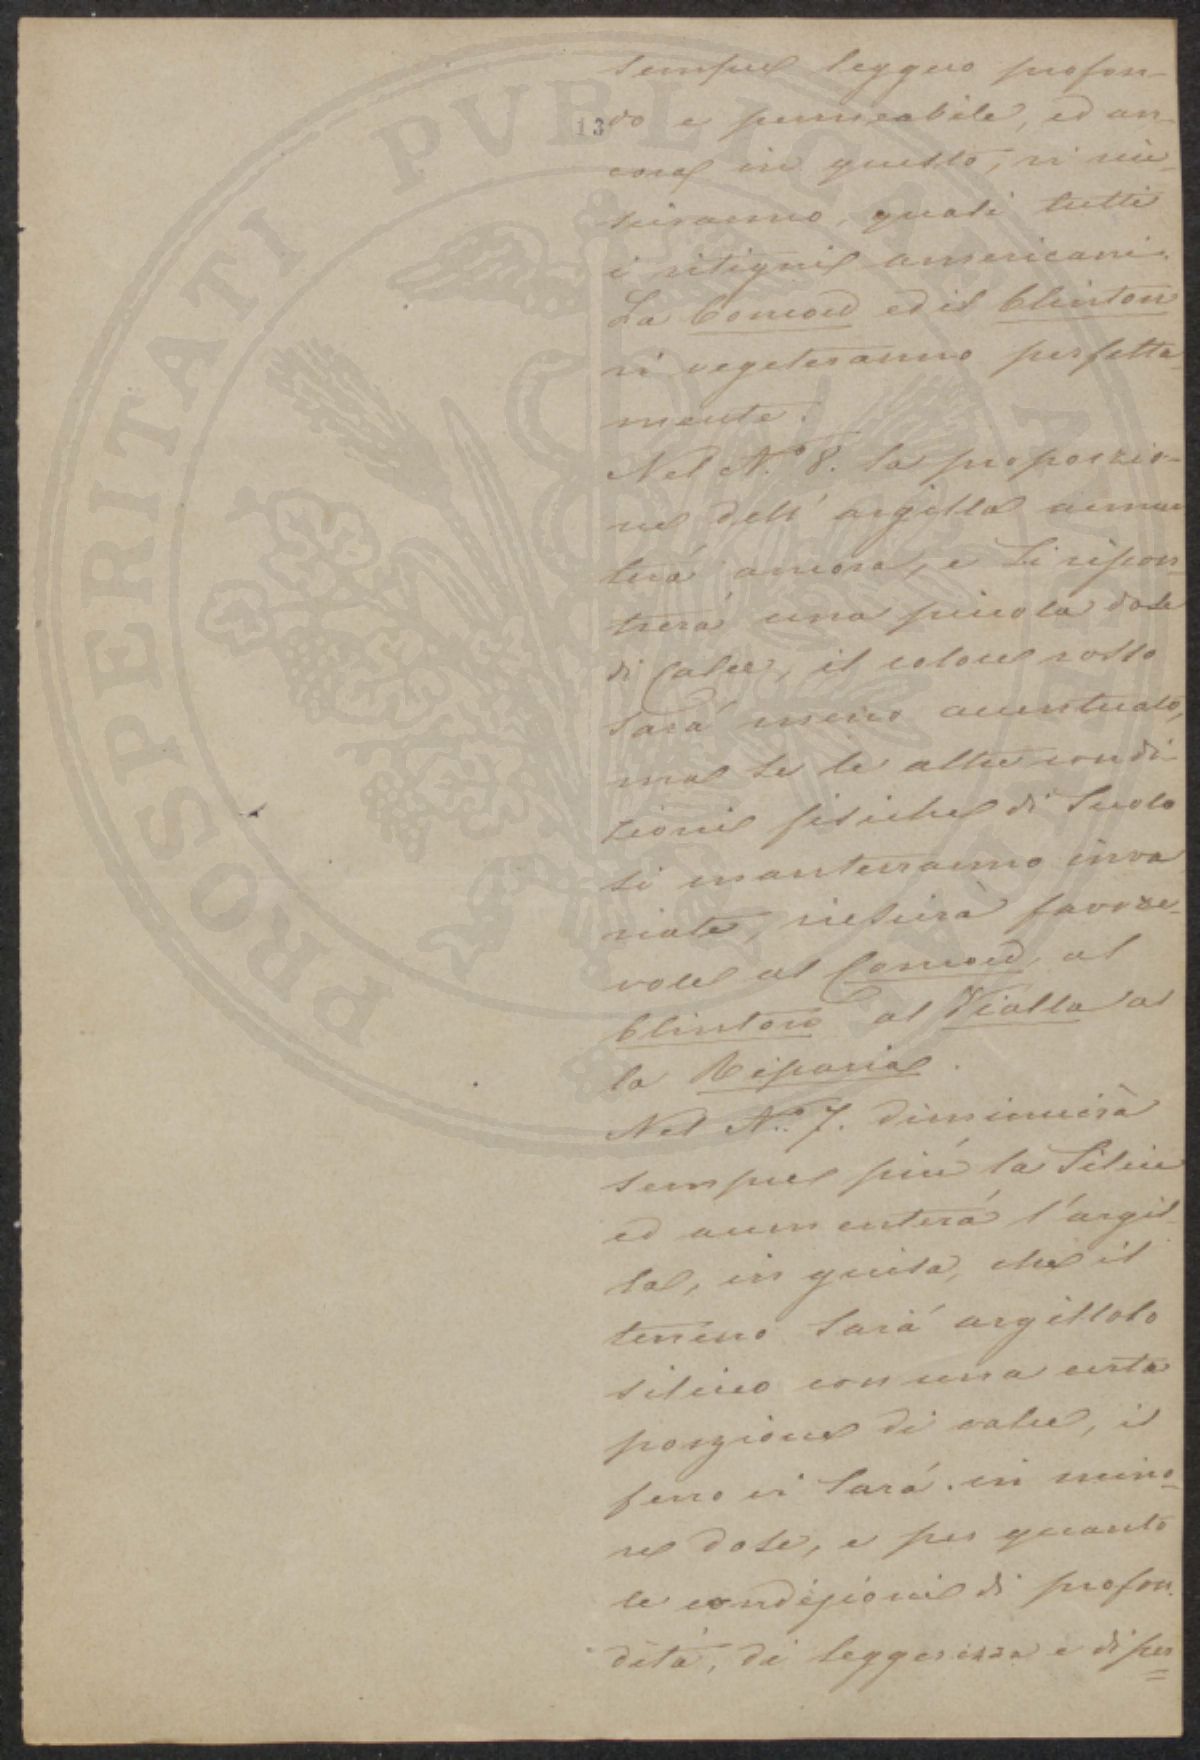 sempre leggero profon-
13
do e permeabile, ed an-
cora in questo, vi riu-
sciranno, quasi tutti
i vitigni americani.
La Concord ed il Clinton
vi vegeteranno perfetta-
mente.
Nel N.° 8. la proporzio-
ne dell' argilla aumen
terá ancora, e si ripon-
trerá una piccola dose
di Calce, il colore rosso
sará meno accentuato,
ma se le altre condi-
zioni fisiche di suolo
si manterranno inva
riate, riescirà favore-
vole al Concord, al
Clinton al Vialla al
la Riparia.
Nel N.° 7. diminuirà
sempre piú la Silice
ed aumenterá l'argil-
la, in guisa, che il
terreno sará argilloso
siliceo con una certa
porzione di calce, il
ferro vi sará in mino-
re dose, e per quanto
le condizioni di profon-
ditá, di leggerezza e di per
PROSPERITATI PVBLICAE AVGENDAE